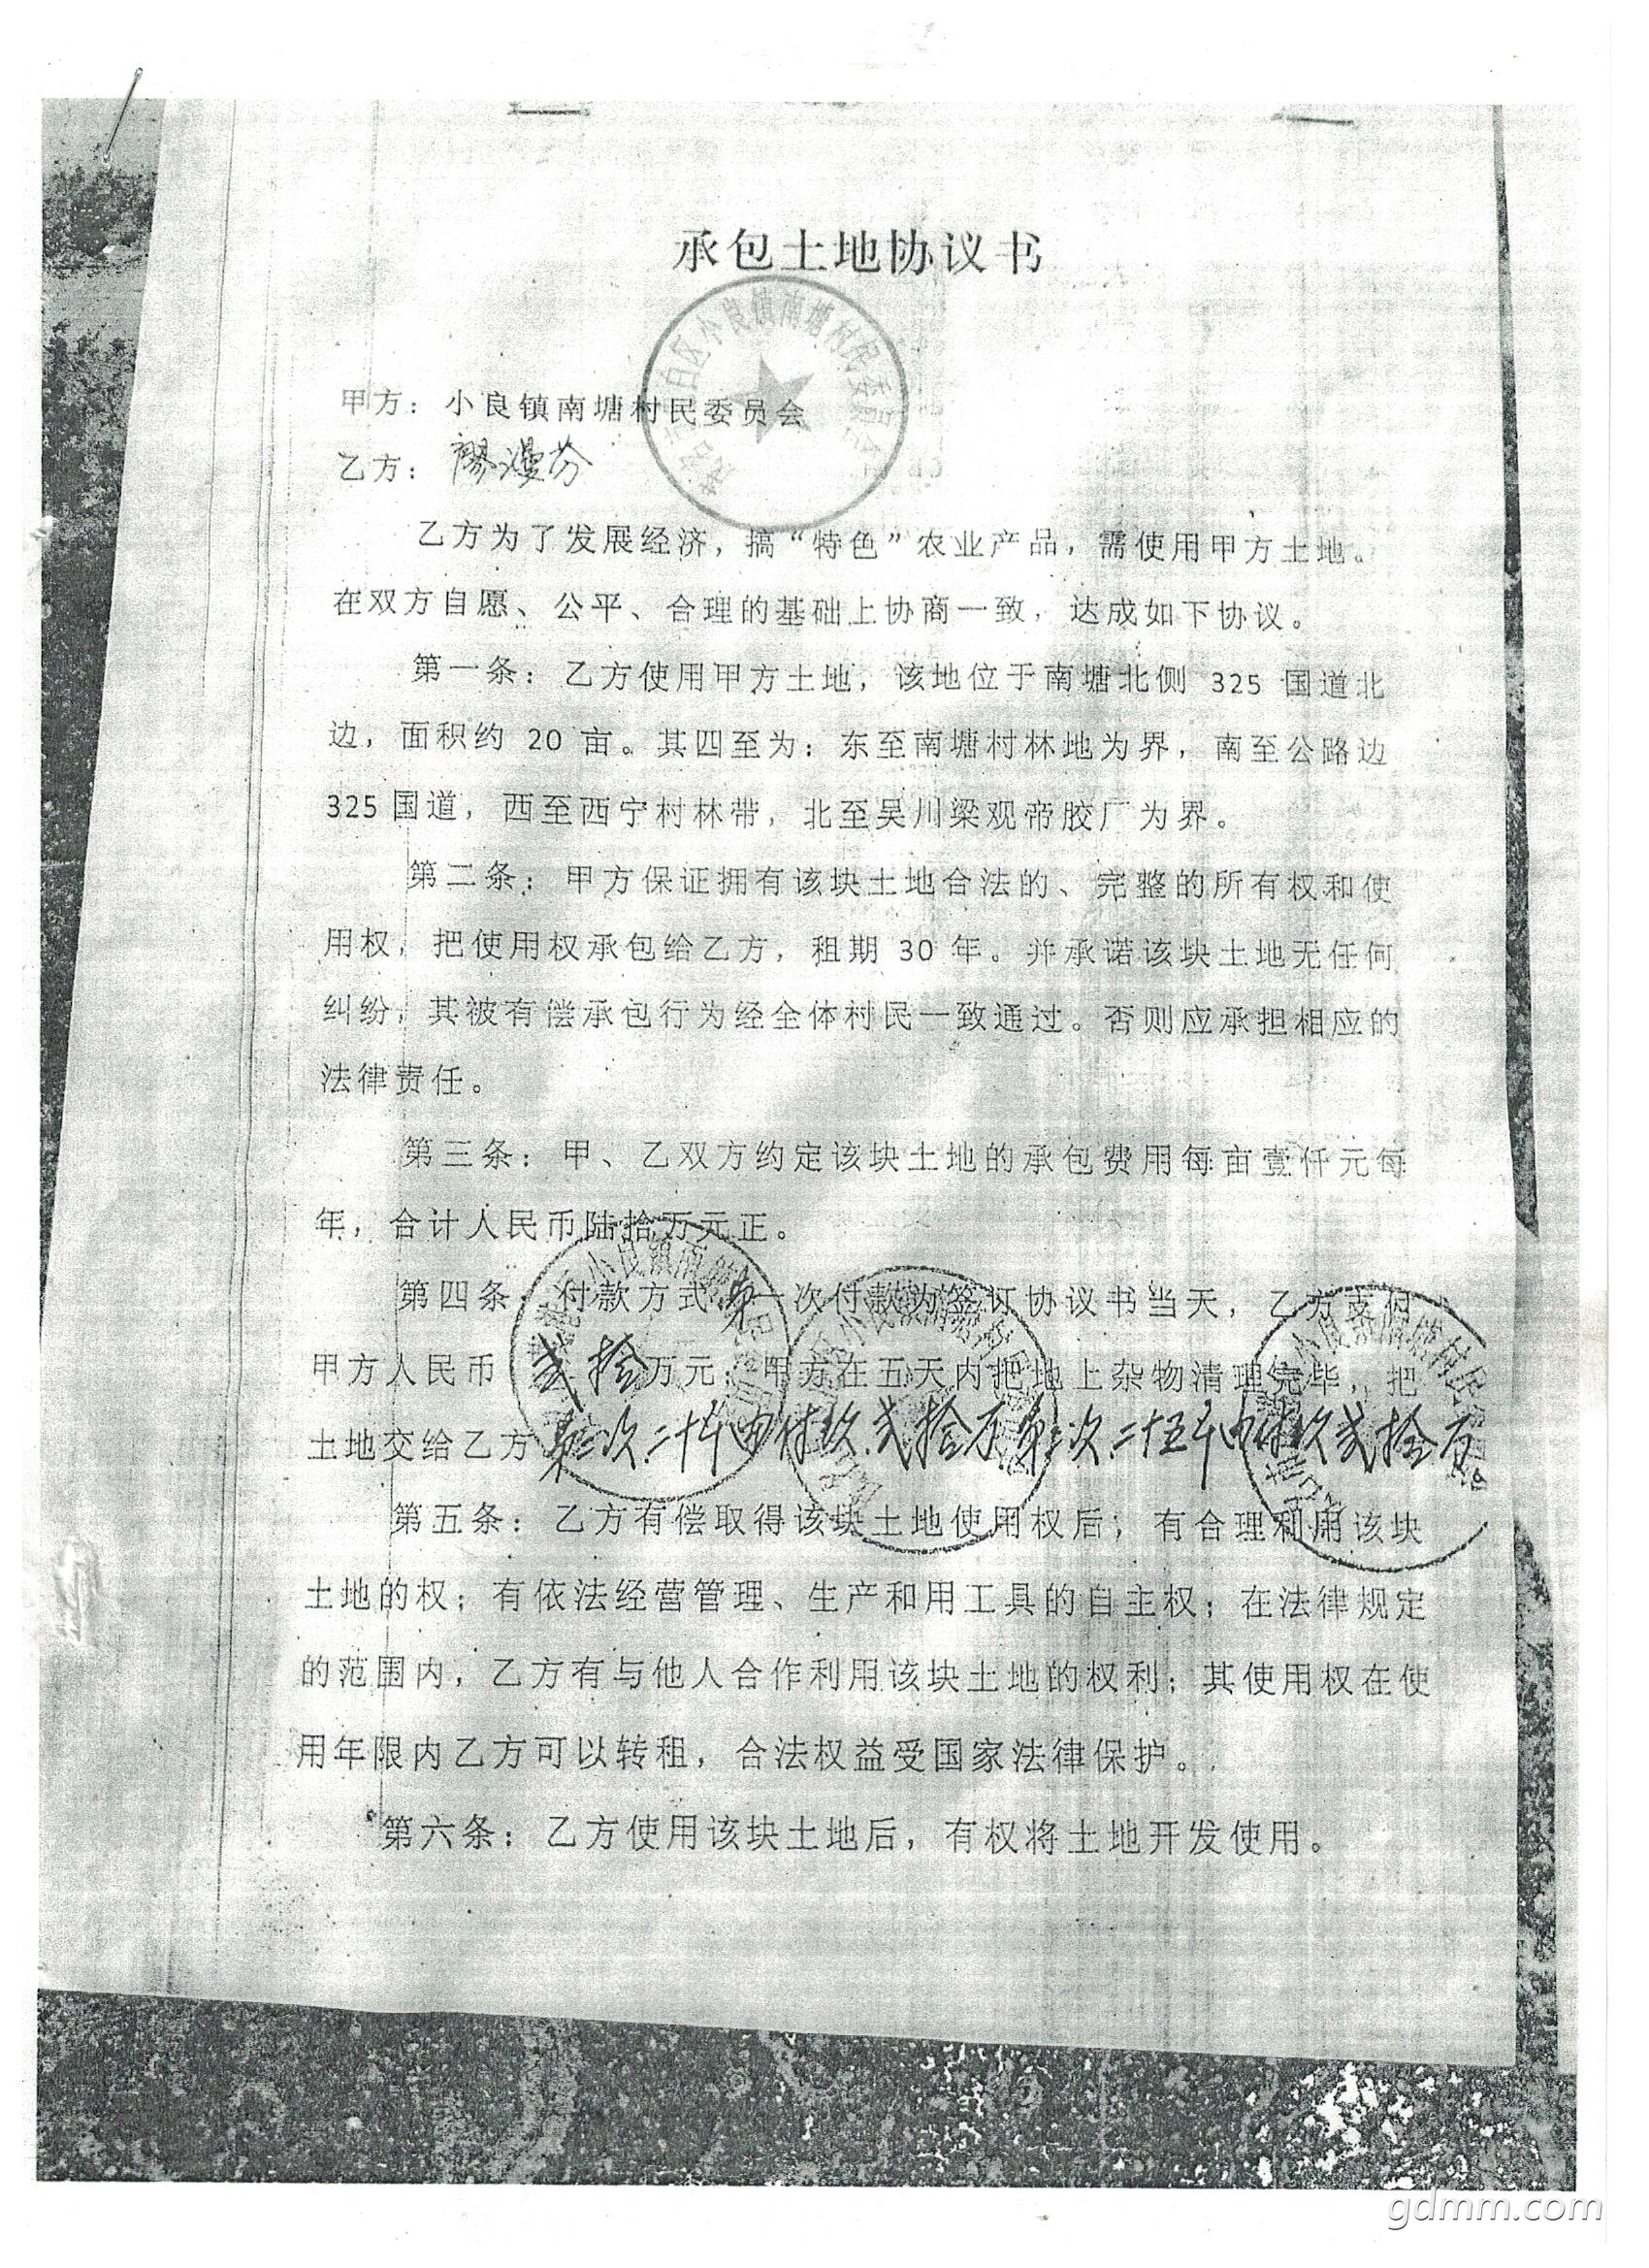 承包土地协议书
甲方：小良镇南塘村民委员会
乙方：廖漫芬
乙方为了发展经济，搞“特色”农业产品，需使用甲方土地。
在双方自愿、公平、合理的基础上协商一致，达成如下协议。
第一条：乙方使用甲方土地，该地位于南塘北侧 325 国道北
边，面积约 20 亩。其四至为：东至南塘村林地为界，南至公路边
325 国道，西至西宁村林带，北至吴川梁观帝胶厂为界。
第二条：甲方保证拥有该块土地合法的、完整的所有权和使
用权，把使用权承包给乙方，租期 30 年。并承诺该块土地无任何
纠纷，其被有偿承包行为经全体村民一致通过。否则应承担相应的
法律责任。
第三条：甲、乙双方约定该块土地的承包费用每亩壹仟元每
年，合计人民币陆拾万元正。
第四条：付款方式第一次付款为签订协议书当天，乙方支付
甲方人民币贰拾万元；甲方在五天内把地上杂物清理完毕，把
土地交给乙方 第二次二十年内付 贰拾万 第三次二十五年内付 贰拾万
第五条：乙方有偿取得该块土地使用权后；有合理利用该块
土地的权；有依法经营管理、生产和用工具的自主权；在法律规定
的范围内，乙方有与他人合作利用该块土地的权利；其使用权在使
用年限内乙方可以转租，合法权益受国家法律保护。
第六条：乙方使用该块土地后，有权将土地开发使用。
gdmm.com